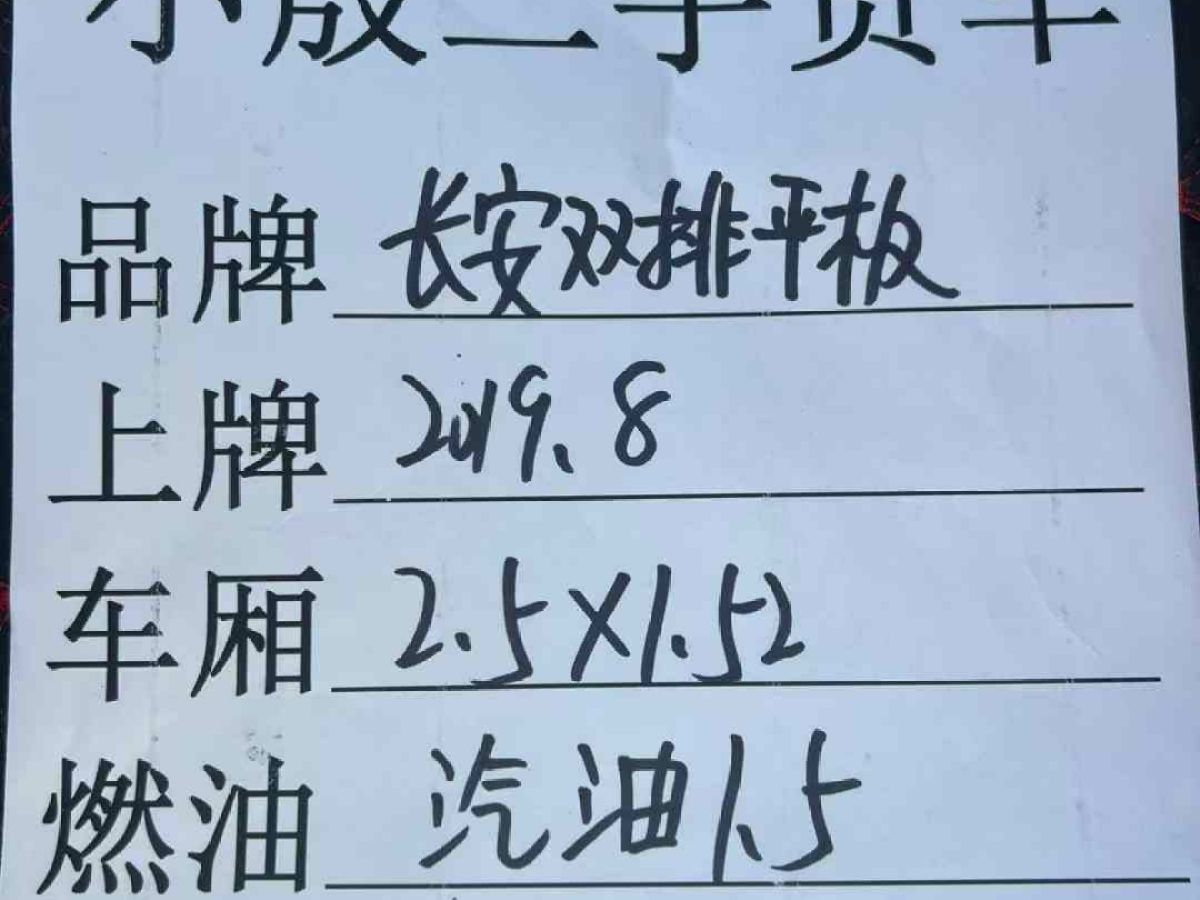 小殷二手货车
品牌 长安双排平板
上牌 2019.8
车厢 2.5×1.52
燃油 汽油1.5